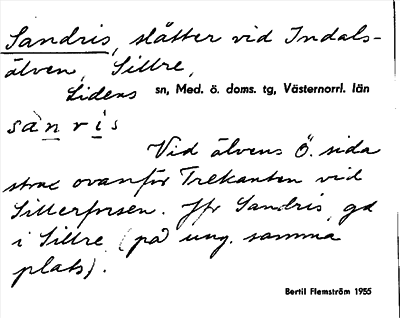 Sandris, slåtter vid Indals-
älven, Sillre,
Lidens sn, Med. ö. doms. tg, Västernorrl. län
sànris
Vid älvens Ö. sida
strax ovanför Trekanten vid
Sillerforsen. Jfr Sandris, gd
i Sillre (på ung. samma
plats).
Bertil Flemström 1955